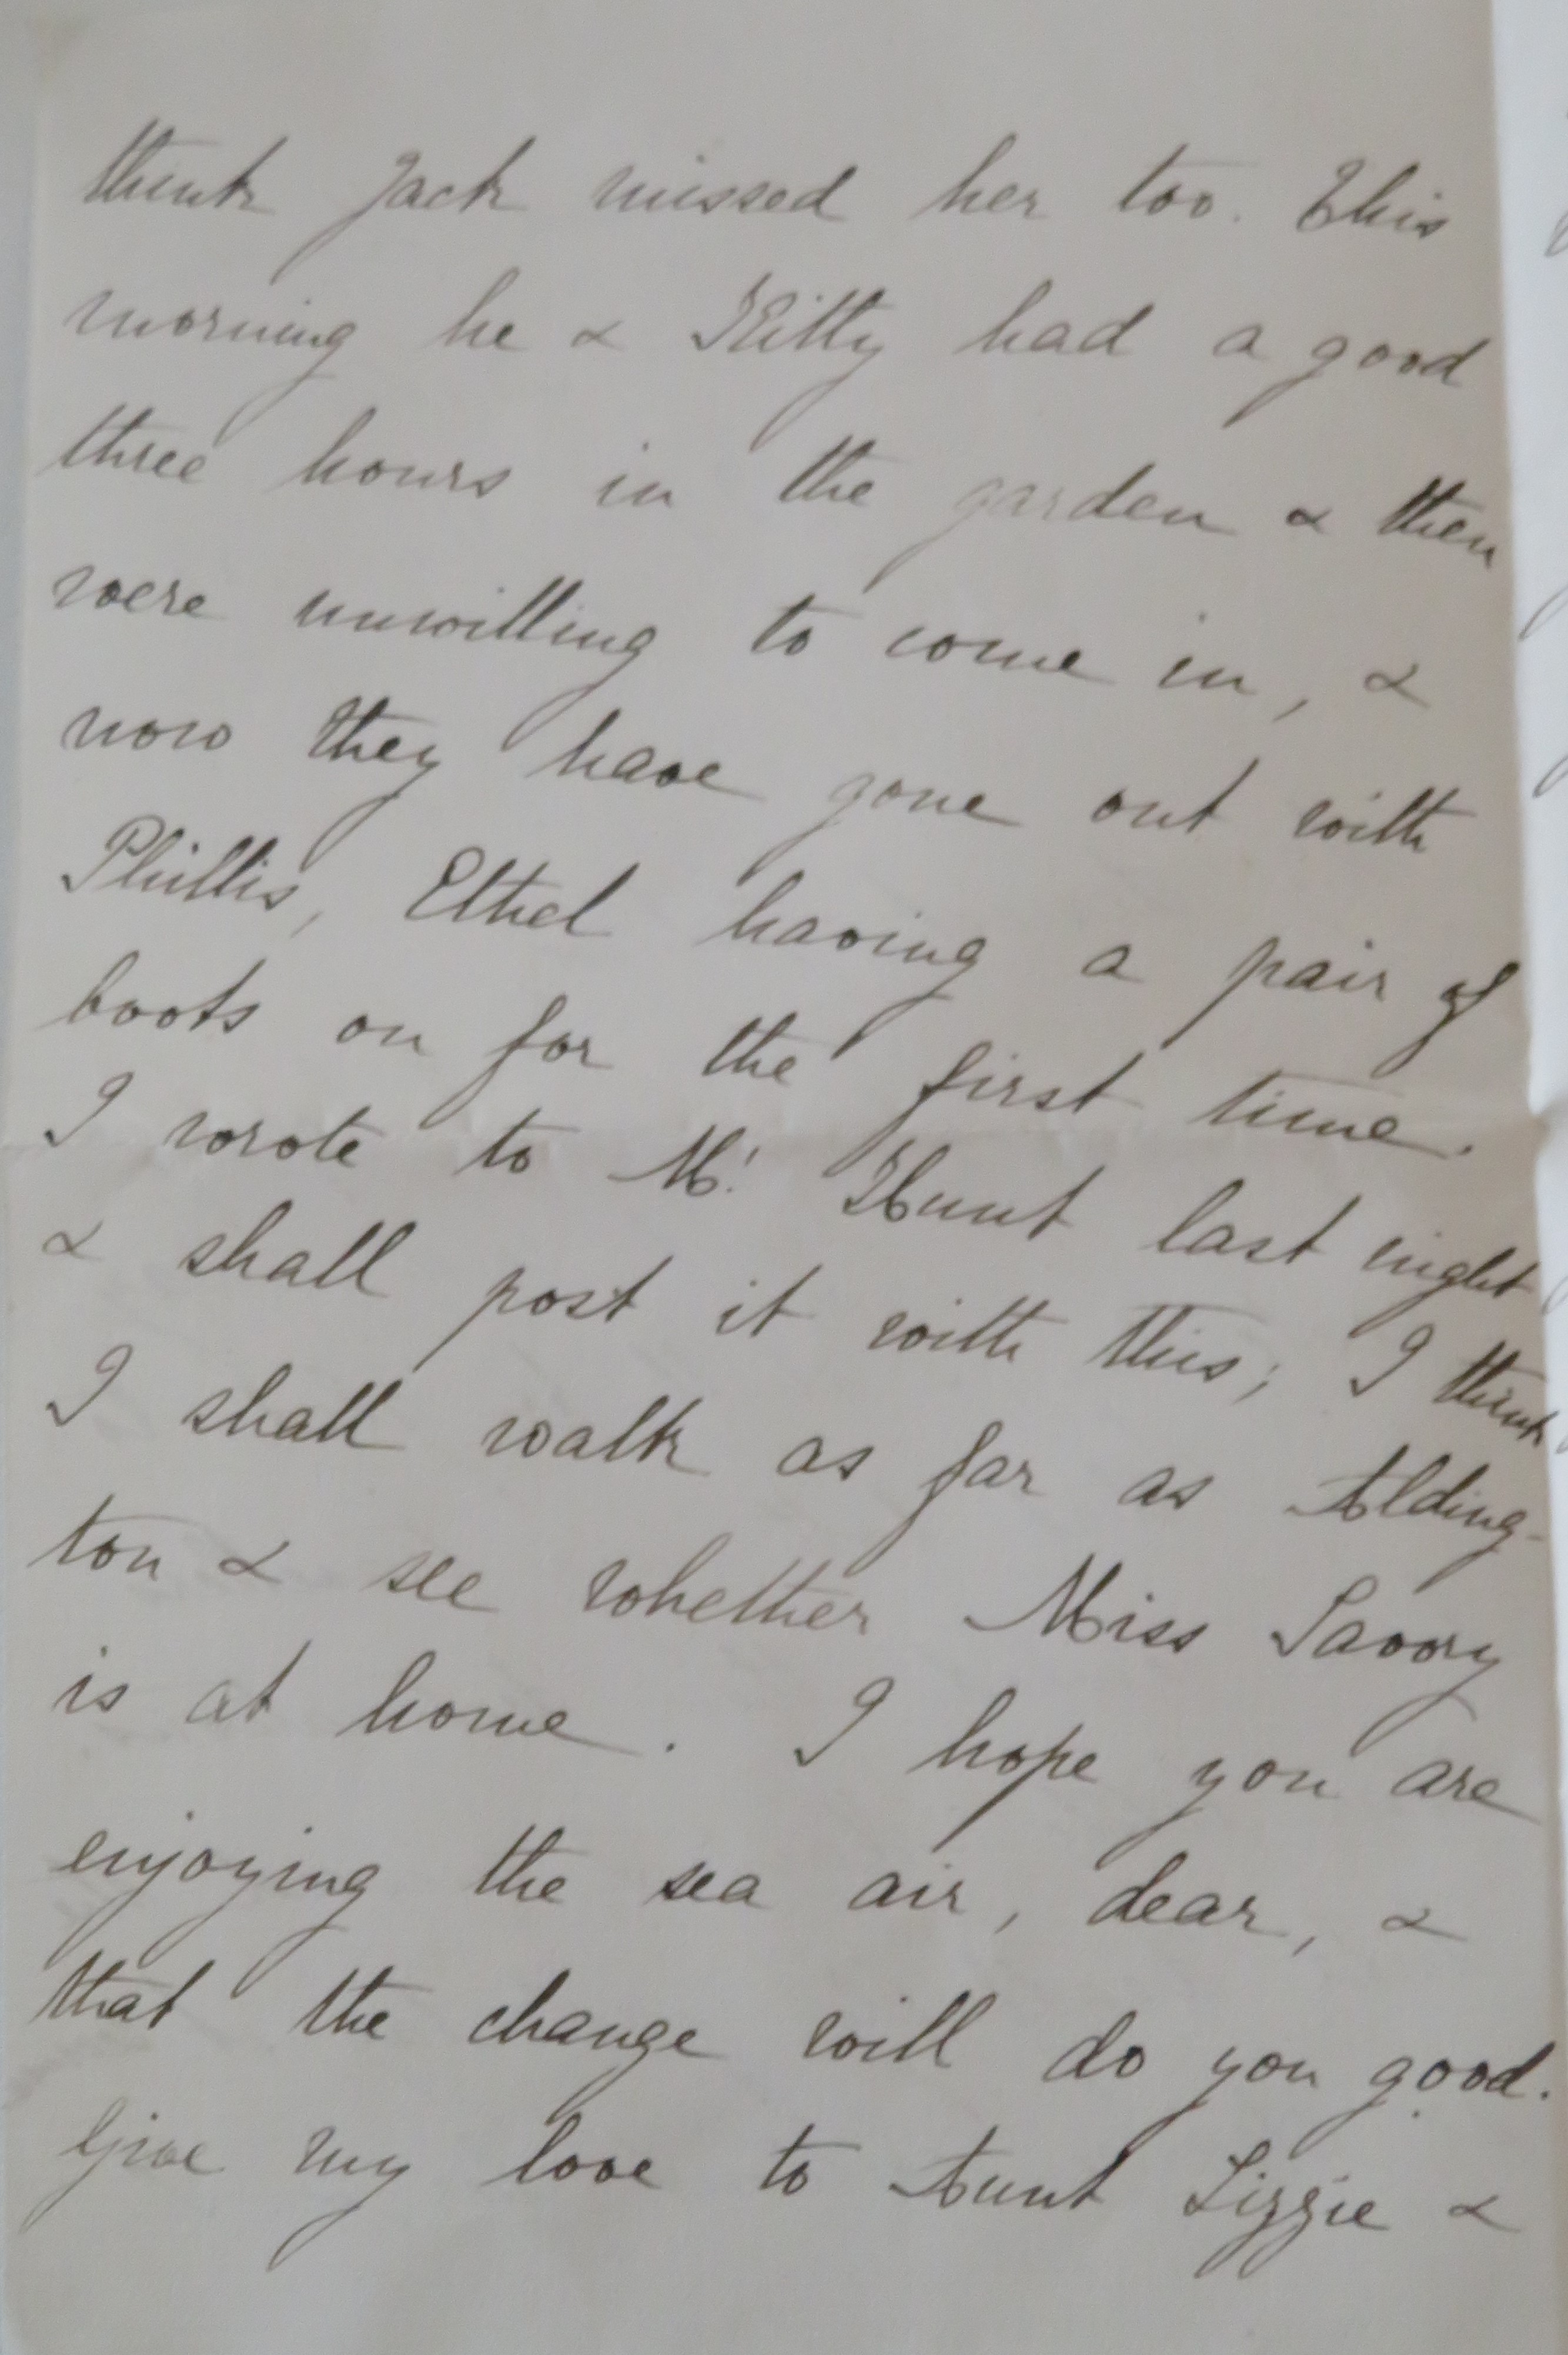 think Jack missed her too. This
morning he & Kitty had a good
three hours in the garden & then
were unwilling to come in, &
now they have gone out with
Phillis, Ethel having a pair of
boots on for the first time.
I wrote to Mr. Hunt last night
& shall post it with this; I think
I shall walk as far as Alding-
ton & see whether Miss Savory
is at home. I hope you are
enjoying the sea air, dear, &
that the change will do you good.
Give my love to Aunt Lizzie &